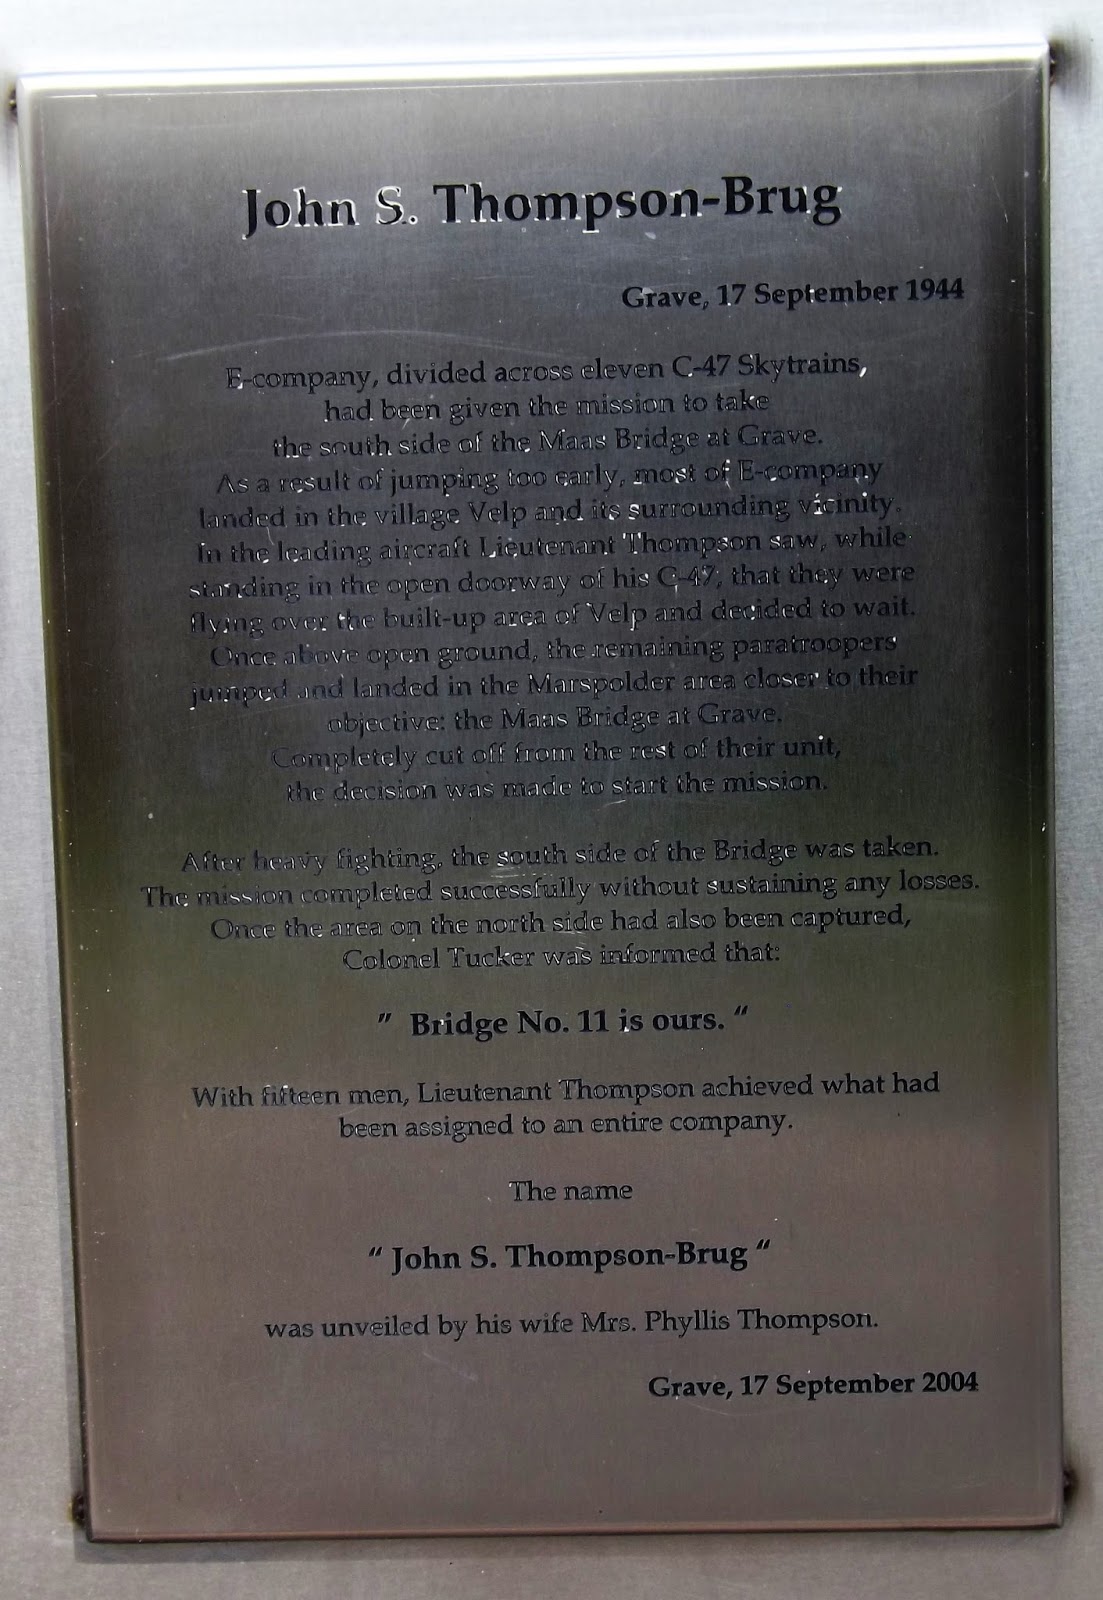 John S. Thompson-Brug
Grave, 17 September 1944
E-company, divided across eleven C-47 Skytrains,
had been given the mission to take
the south side of the Maas Bridge at Grave.
As a result of jumping too early, most of E-company
landed in the village Velp and its surrounding vicinity.
In the leading aircraft Lieutenant Thompson saw, while
standing in the open doorway of his C-47, that they were
flying over the built-up area of Velp and decided to wait.
Once above open ground, the remaining paratroopers
jumped and landed in the Marspolder area closer to their
objective: the Maas Bridge at Grave.
Completely cut off from the rest of their unit,
the decision was made to start the mission.
After heavy fighting, the south side of the Bridge was taken.
The mission completed successfully without sustaining any losses.
Once the area on the north side had also been captured,
Colonel Tucker was informed that:
" Bridge No. 11 is ours. "
With fifteen men, Lieutenant Thompson achieved what had
been assigned to an entire company.
The name
" John S. Thompson-Brug "
was unveiled by his wife Mrs. Phyllis Thompson.
Grave, 17 September 2004